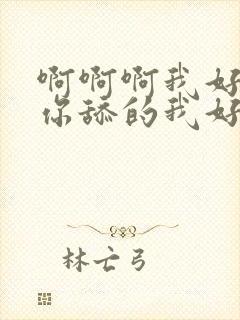 啊啊啊我好
你舔的我好
林亡弓